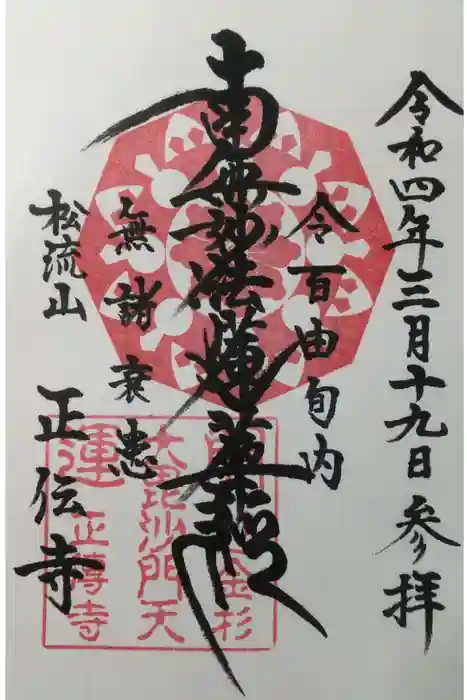 令和四年三月十九日 参拝
令百由旬内
南無妙法蓮華経
無諸衰患
松流山
正伝寺
金杉
大毘沙門天
開運
正傳寺